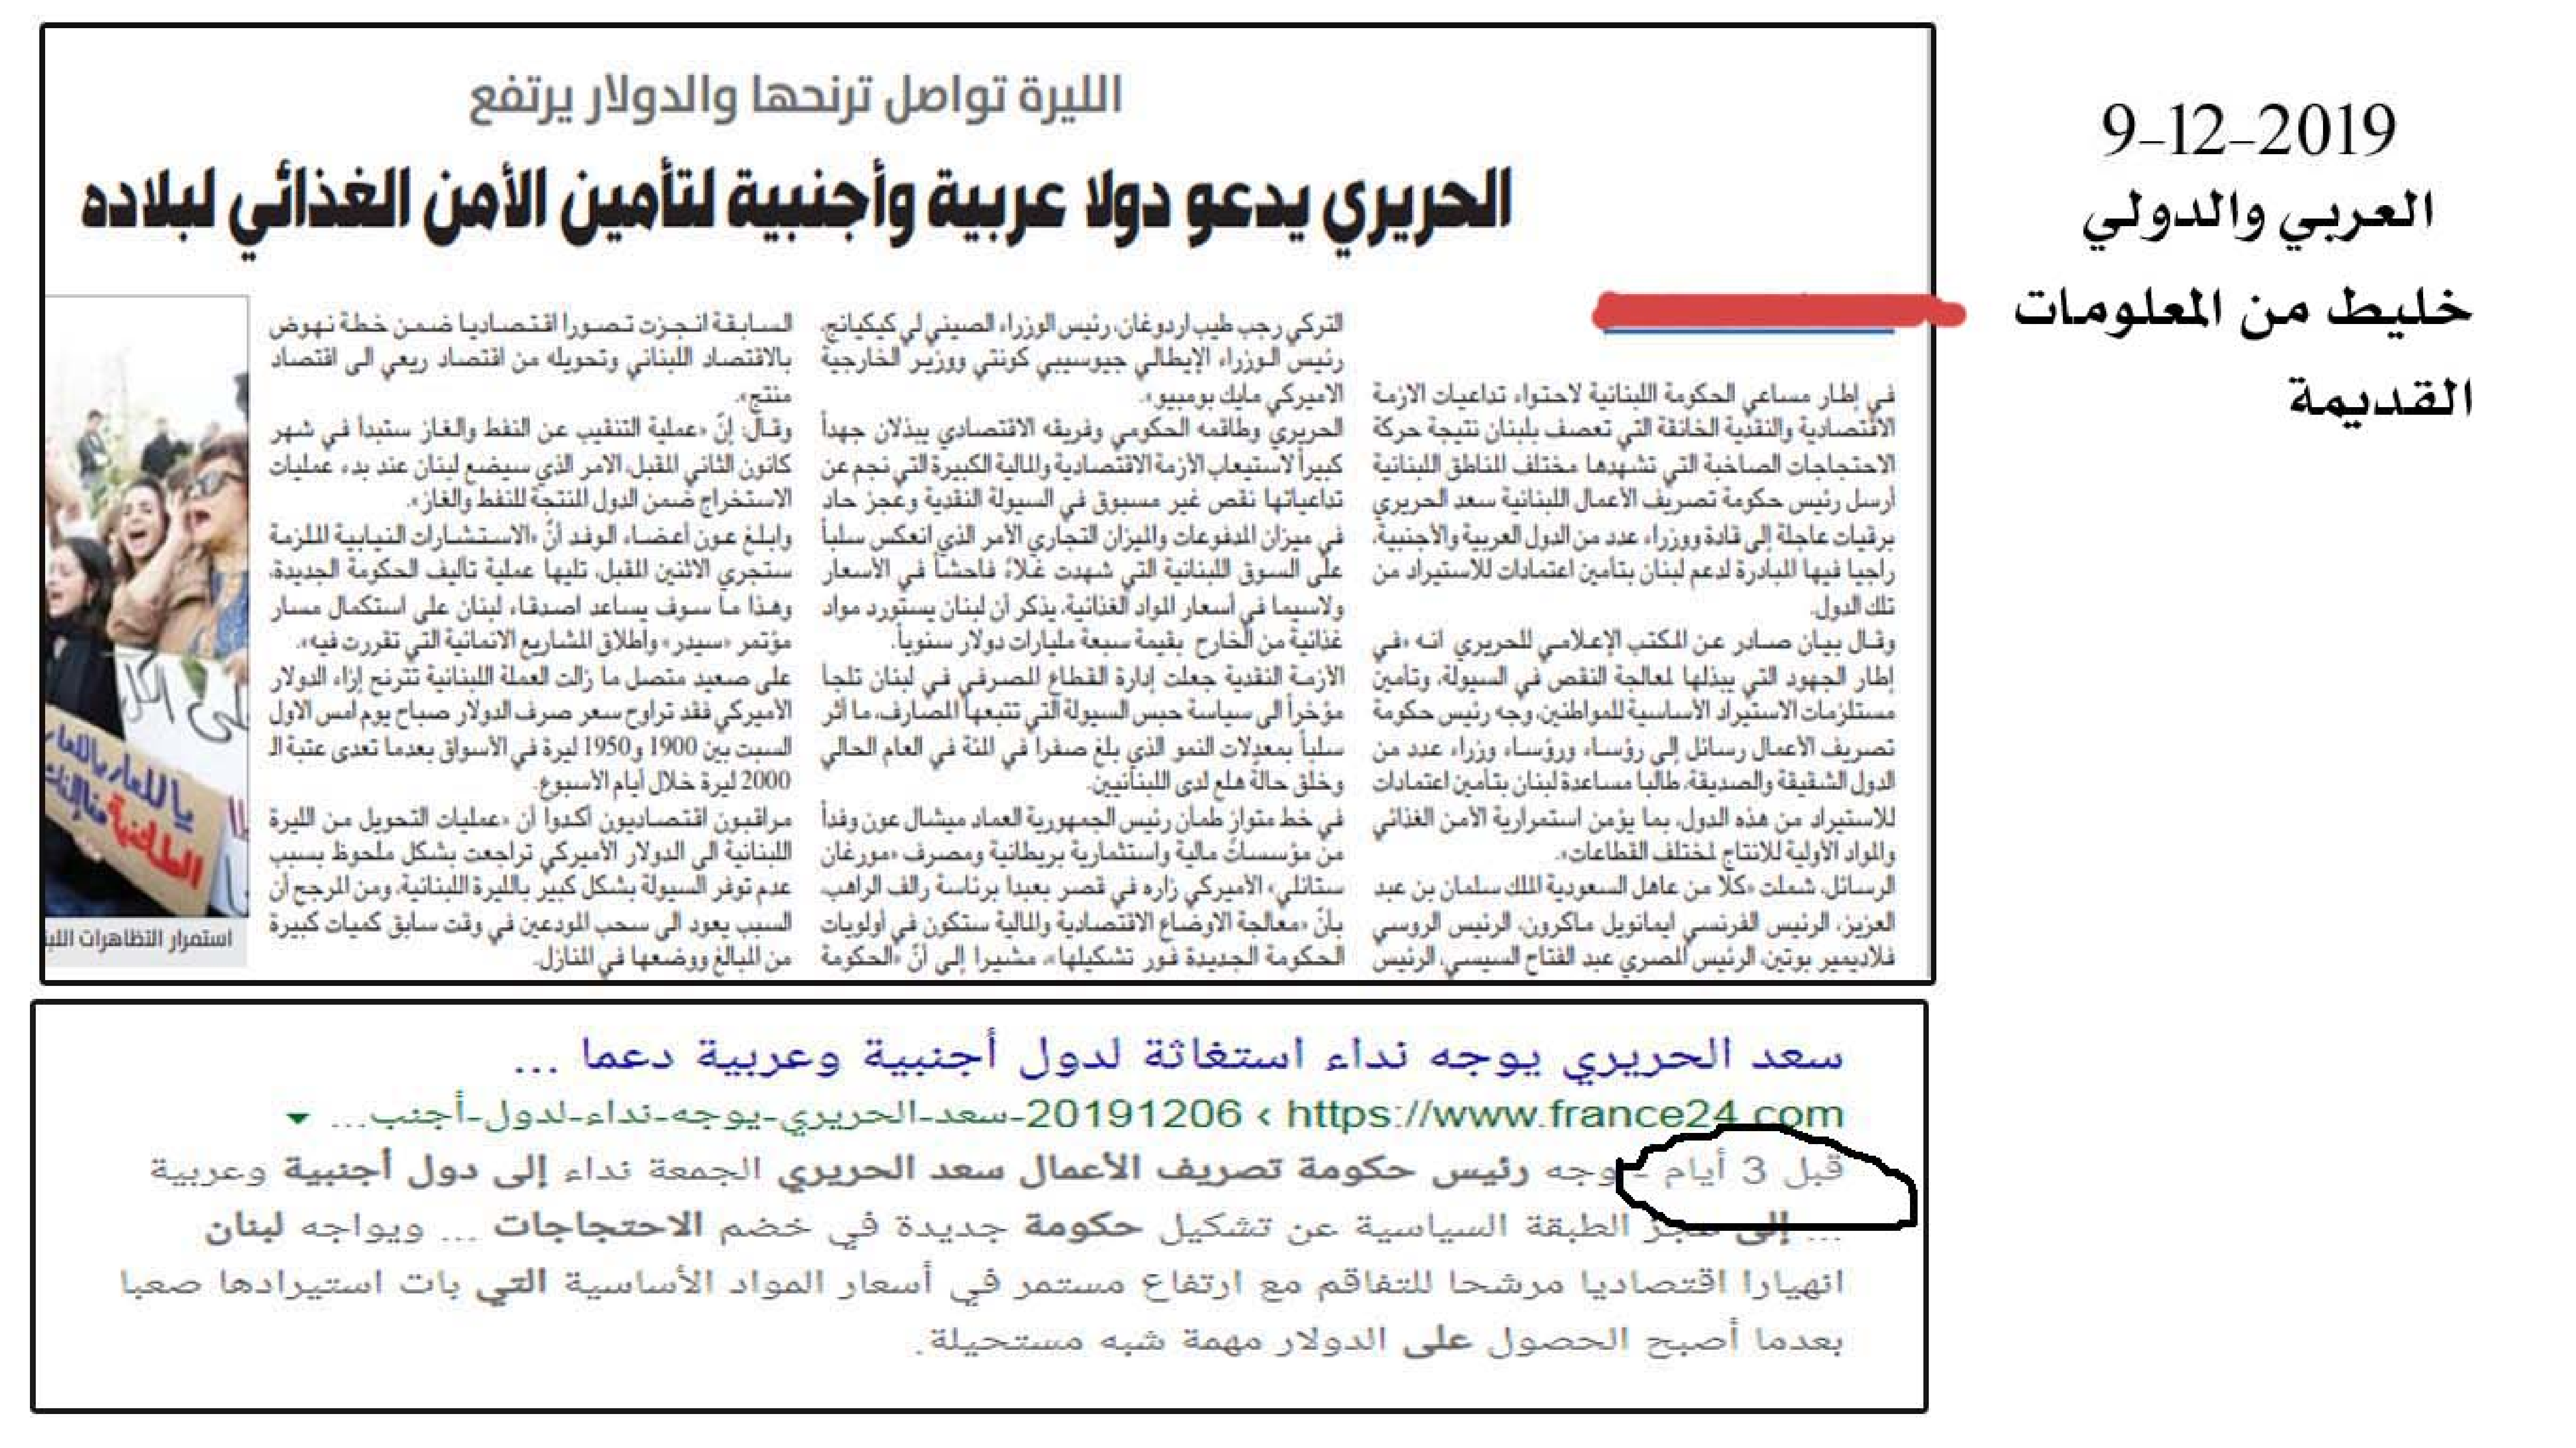 9-12-2019
العربي والدولي
خليط من المعلومات
القديمة
الليرة تواصل ترنحها والدولار يرتفع
الحريري يدعو دولا عربية وأجنبية لتأمين الأمن الغذائي لبلاده
في إطار مساعي الحكومة اللبنانية لاحتواء تداعيات الازمة
الاقتصادية والنقدية الخانقة التي تعصف بلبنان نتيجة حركة
الاحتجاجات الصاخبة التي تشهدها مختلف المناطق اللبنانية
أرسل رئيس حكومة تصريف الأعمال اللبنانية سعد الحريري
برقيات عاجلة إلى قادة ووزراء عدد من الدول العربية والأجنبية،
راجيا فيها المبادرة لدعم لبنان بتأمين اعتمادات للاستيراد من
تلك الدول.
وقال بيان صادر عن المكتب الإعلامي للحريري انه «في
إطار الجهود التي يبذلها لمعالجة النقص في السيولة، وتأمين
مستلزمات الاستيراد الأساسية للمواطنين، وجه رئيس حكومة
تصريف الأعمال رسائل إلى رؤساء ورؤساء وزراء عدد من
الدول الشقيقة والصديقة، طالبا مساعدة لبنان بتأمين اعتمادات
للاستيراد من هذه الدول، بما يؤمن استمرارية الأمن الغذائي
والمواد الأولية للانتاج لمختلف القطاعات».
الرسائل، شملت «كلا من عاهل السعودية الملك سلمان بن عبد
العزيز، الرئيس الفرنسي ايمانويل ماكرون، الرئيس الروسي
فلاديمير بوتين، الرئيس المصري عبد الفتاح السيسي، الرئيس
التركي رجب طيب اردوغان، رئيس الوزراء الصيني لي كيكيانج،
رئيس الوزراء الإيطالي جيوسيبي كونتي ووزير الخارجية
الاميركي مايك بومبيو».
الحريري وطاقمه الحكومي وفريقه الاقتصادي يبذلان جهداً
كبيراً لاستيعاب الأزمة الاقتصادية والمالية الكبيرة التي نجم عن
تداعياتها نقص غير مسبوق في السيولة النقدية وعجز حاد
في ميزان المدفوعات والميزان التجاري الأمر الذي انعكس سلباً
على السوق اللبنانية التي شهدت غلاءً فاحشاً في الأسعار
ولاسيما في أسعار المواد الغذائية، يذكر أن لبنان يستورد مواد
غذائية من الخارج بقيمة سبعة مليارات دولار سنوياً.
الأزمة النقدية جعلت إدارة القطاع المصرفي في لبنان تلجأ
مؤخراً الى سياسة حبس السيولة التي تتبعها المصارف، ما أثر
سلباً بمعدلات النمو الذي بلغ صفرا في المئة في العام الحالي
وخلق حالة هلع لدى اللبنانيين.
في خط متواز طمأن رئيس الجمهورية العماد ميشال عون وفداً
من مؤسسات مالية واستثمارية بريطانية ومصرف «مورغان
ستانلي» الأميركي زاره في قصر بعبدا برئاسة رالف الراهب،
بأنّ «معالجة الاوضاع الاقتصادية والمالية ستكون في أولويات
الحكومة الجديدة فور تشكيلها»، مشيرا إلى أنّ «الحكومة
السابقة انجزت تصورا اقتصاديا ضمن خطة نهوض
بالاقتصاد اللبناني وتحويله من اقتصاد ريعي الى اقتصاد
منتج».
وقال: إنّ «عملية التنقيب عن النفط والغاز ستبدأ في شهر
كانون الثاني المقبل، الامر الذي سيضع لبنان عند بدء عمليات
الاستخراج ضمن الدول المنتجة للنفط والغاز».
وابلغ عون أعضاء الوفد أنّ «الاستشارات النيابية الملزمة
ستجري الاثنين المقبل، تليها عملية تأليف الحكومة الجديدة،
وهذا ما سوف يساعد اصدقاء لبنان على استكمال مسار
مؤتمر «سيدر» واطلاق المشاريع الانمائية التي تقررت فيه».
على صعيد متصل ما زالت العملة اللبنانية تترنح إزاء الدولار
الأميركي فقد تراوح سعر صرف الدولار صباح يوم امس الاول
السبت بين 1900 و1950 ليرة في الأسواق بعدما تعدى عتبة الـ
2000 ليرة خلال أيام الأسبوع.
مراقبون اقتصاديون أكدوا أن «عمليات التحويل من الليرة
اللبنانية الى الدولار الأميركي تراجعت بشكل ملحوظ بسبب
عدم توفر السيولة بشكل كبير بالليرة اللبنانية، ومن المرجح أن
السبب يعود الى سحب المودعين في وقت سابق كميات كبيرة
من المبالغ ووضعها في المنازل.
استمرار التظاهرات
سعد الحريري يوجه نداء استغاثة لدول أجنبية وعربية دعما ...
https://www.france24.com › 20191206-سعد-الحريري-يوجه-نداء-لدول-أجنب...
قبل 3 أيام - وجه رئيس حكومة تصريف الأعمال سعد الحريري الجمعة نداء إلى دول أجنبية وعربية
... إلى عجز الطبقة السياسية عن تشكيل حكومة جديدة في خضم الاحتجاجات ... ويواجه لبنان
انهيارا اقتصاديا مرشحا للتفاقم مع ارتفاع مستمر في أسعار المواد الأساسية التي بات استيرادها صعبا
بعدما أصبح الحصول على الدولار مهمة شبه مستحيلة.